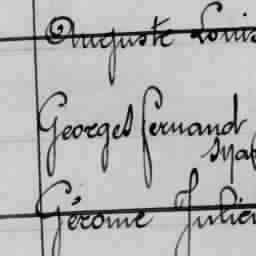 Auguste Louis
Georges Fernand
Gérome Julien